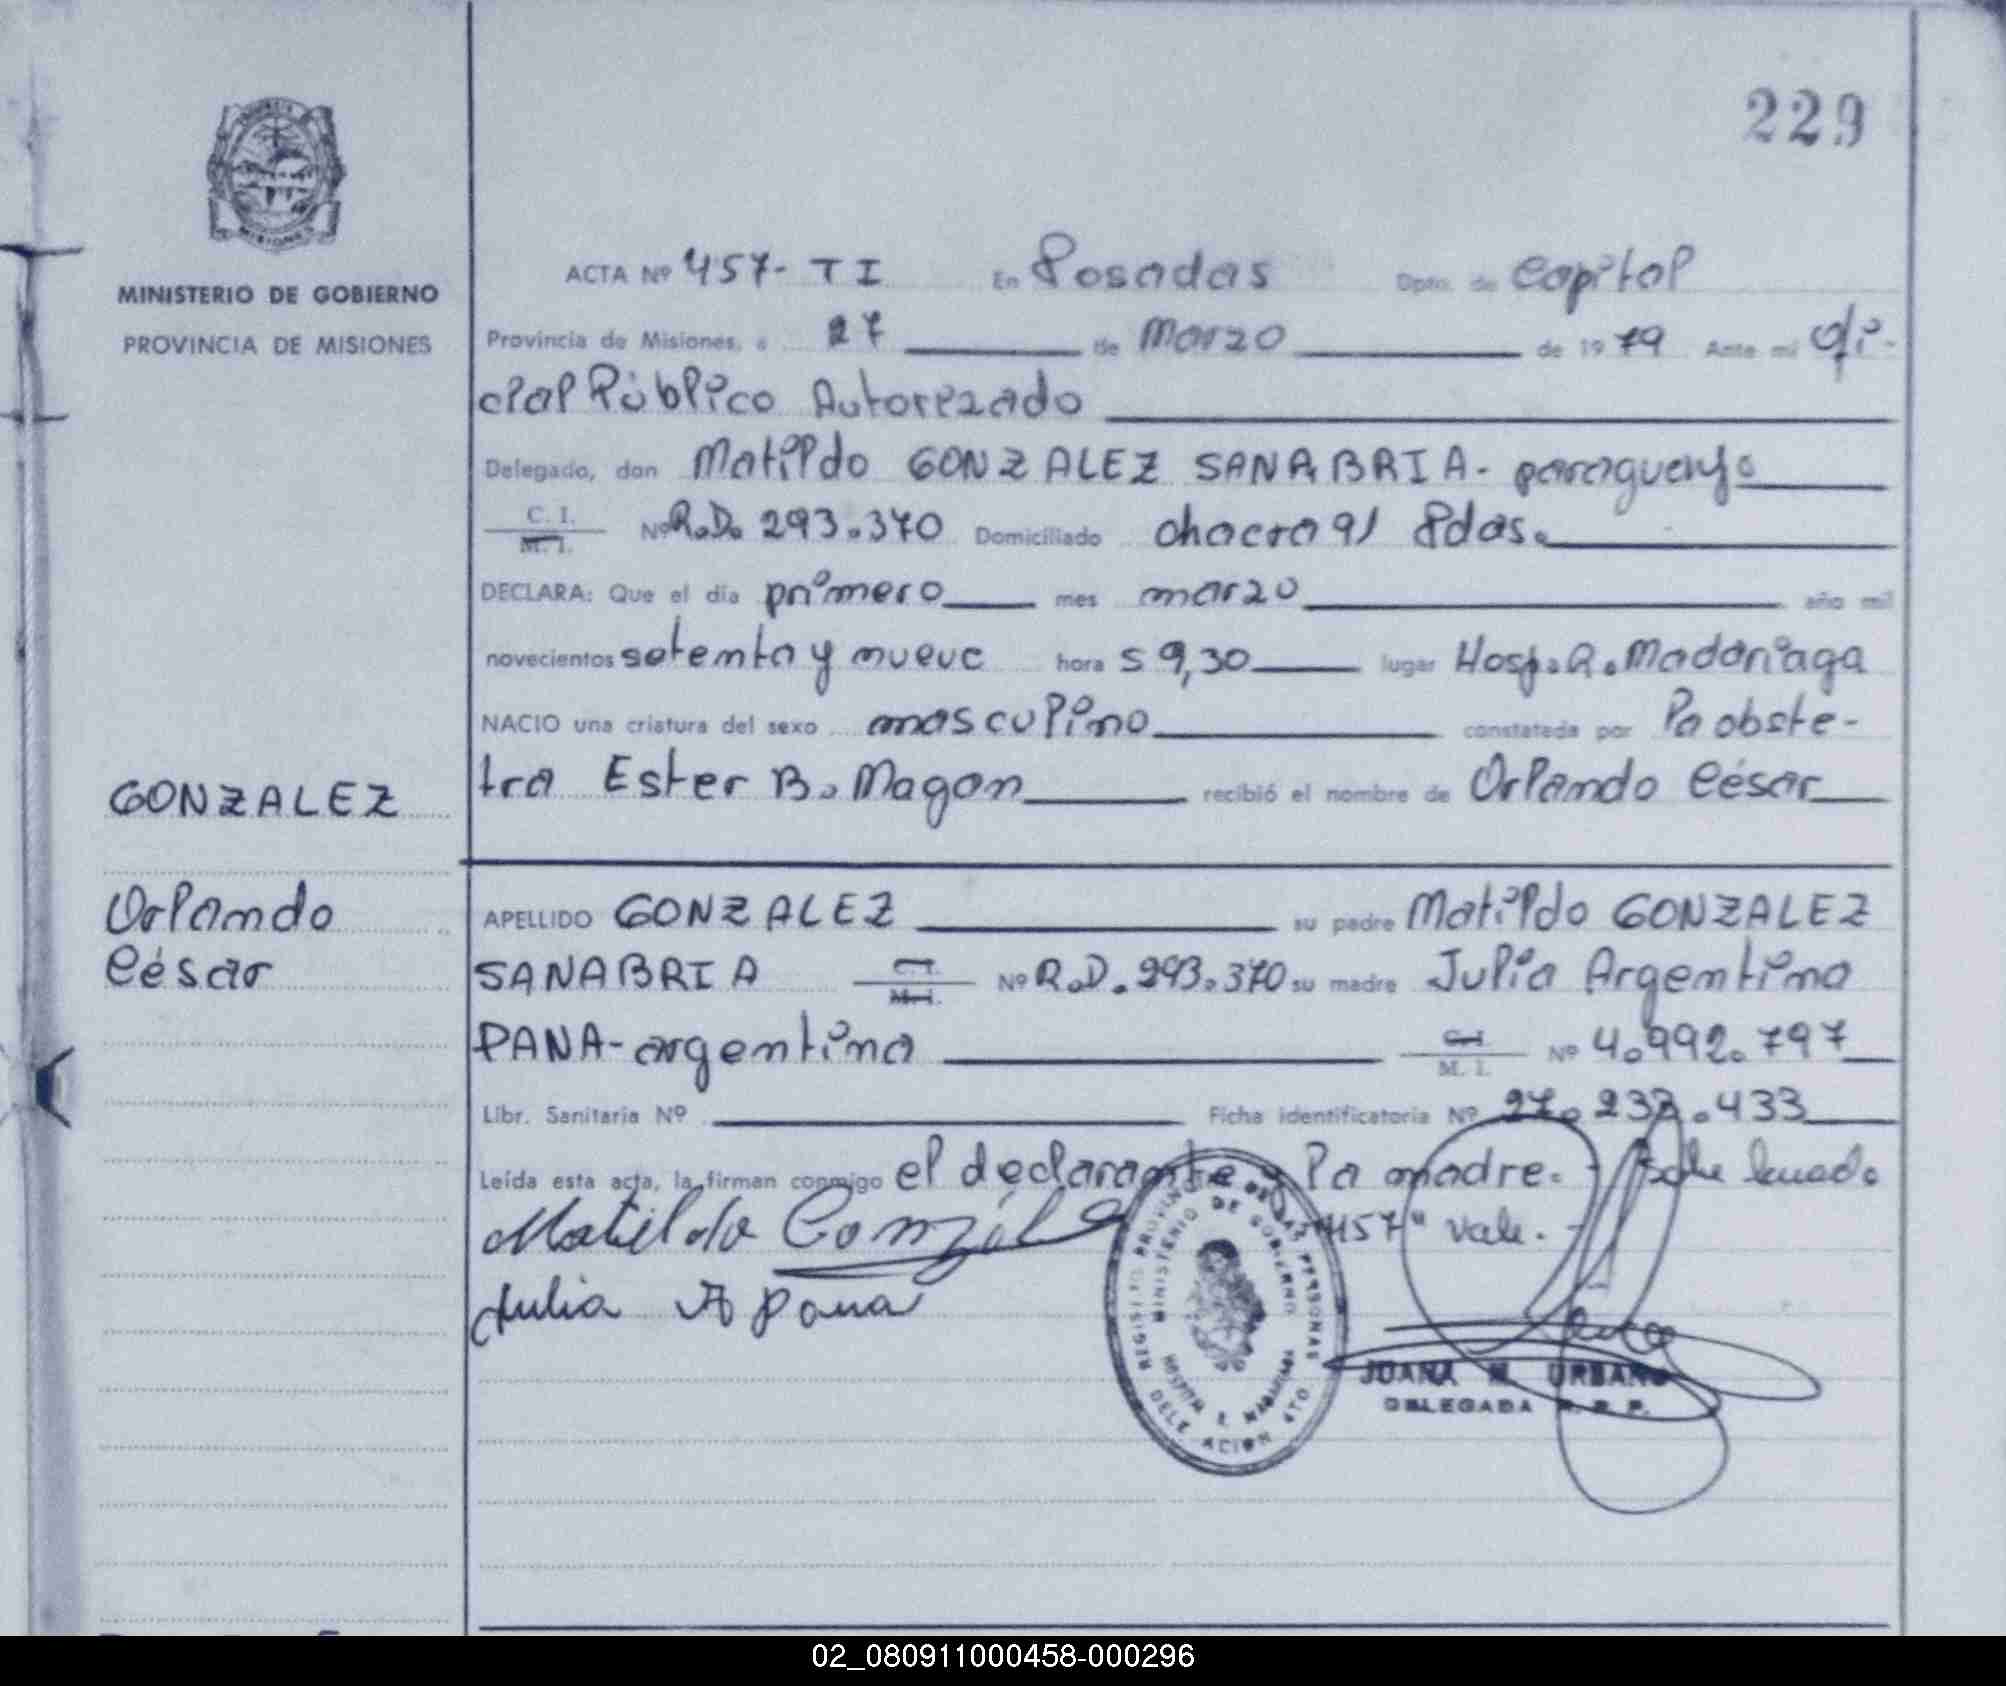 229
MISIONES
MINISTERIO DE GOBIERNO
PROVINCIA DE MISIONES
ACTA Nº 457- TI En Posadas Dpto. de Capital
Provincia de Misiones, a 27 de Marzo de 1979 Ante mi Ofi-
cial Público Autorizado
Delegado, don Matildo GONZALEZ SANABRIA- paraguayo
C. I. M. I. Nº R.D. 293.370 Domiciliado chacra 91 Pdas.
DECLARA: Que el dia primero mes marzo año mil
novecientos setenta y nueve hora s 9,30 lugar Hosp. R. Madariaga
NACIO una criatura del sexo masculino constatada por la obste-
tra Ester B. Magan recibió el nombre de Orlando César
GONZALEZ
Orlando
César
APELLIDO GONZALEZ su padre Matildo GONZALEZ
SANABRIA C. I. M. I. Nº R.D. 293.370 su madre Julia Argentina
PANA- argentina C. I. M. I. Nº 4.992.797
Libr. Sanitaria Nº Ficha identificatoria Nº 27.233.433
Leída esta acta, la firman conmigo el declarante y la madre.
"457" vale.
Matildo González
Julia A Pana
REGISTRO PROVINCIAL DE LAS PERSONAS
MINISTERIO DE GOBIERNO
HOSPITAL R. MADARIAGA
DELEGACION
JUANA M. URBANO
DELEGADA R. P. P.
02_080911000458-000296